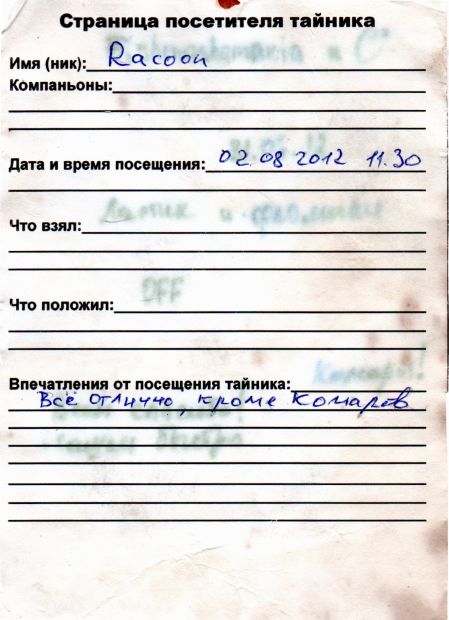 Страница посетителя тайника
Имя (ник): Racoon
Компаньоны:
Дата и время посещения: 02.08 2012 11.30
Что взял:
Что положил:
Впечатления от посещения тайника:
Всё отлично, кроме комаров